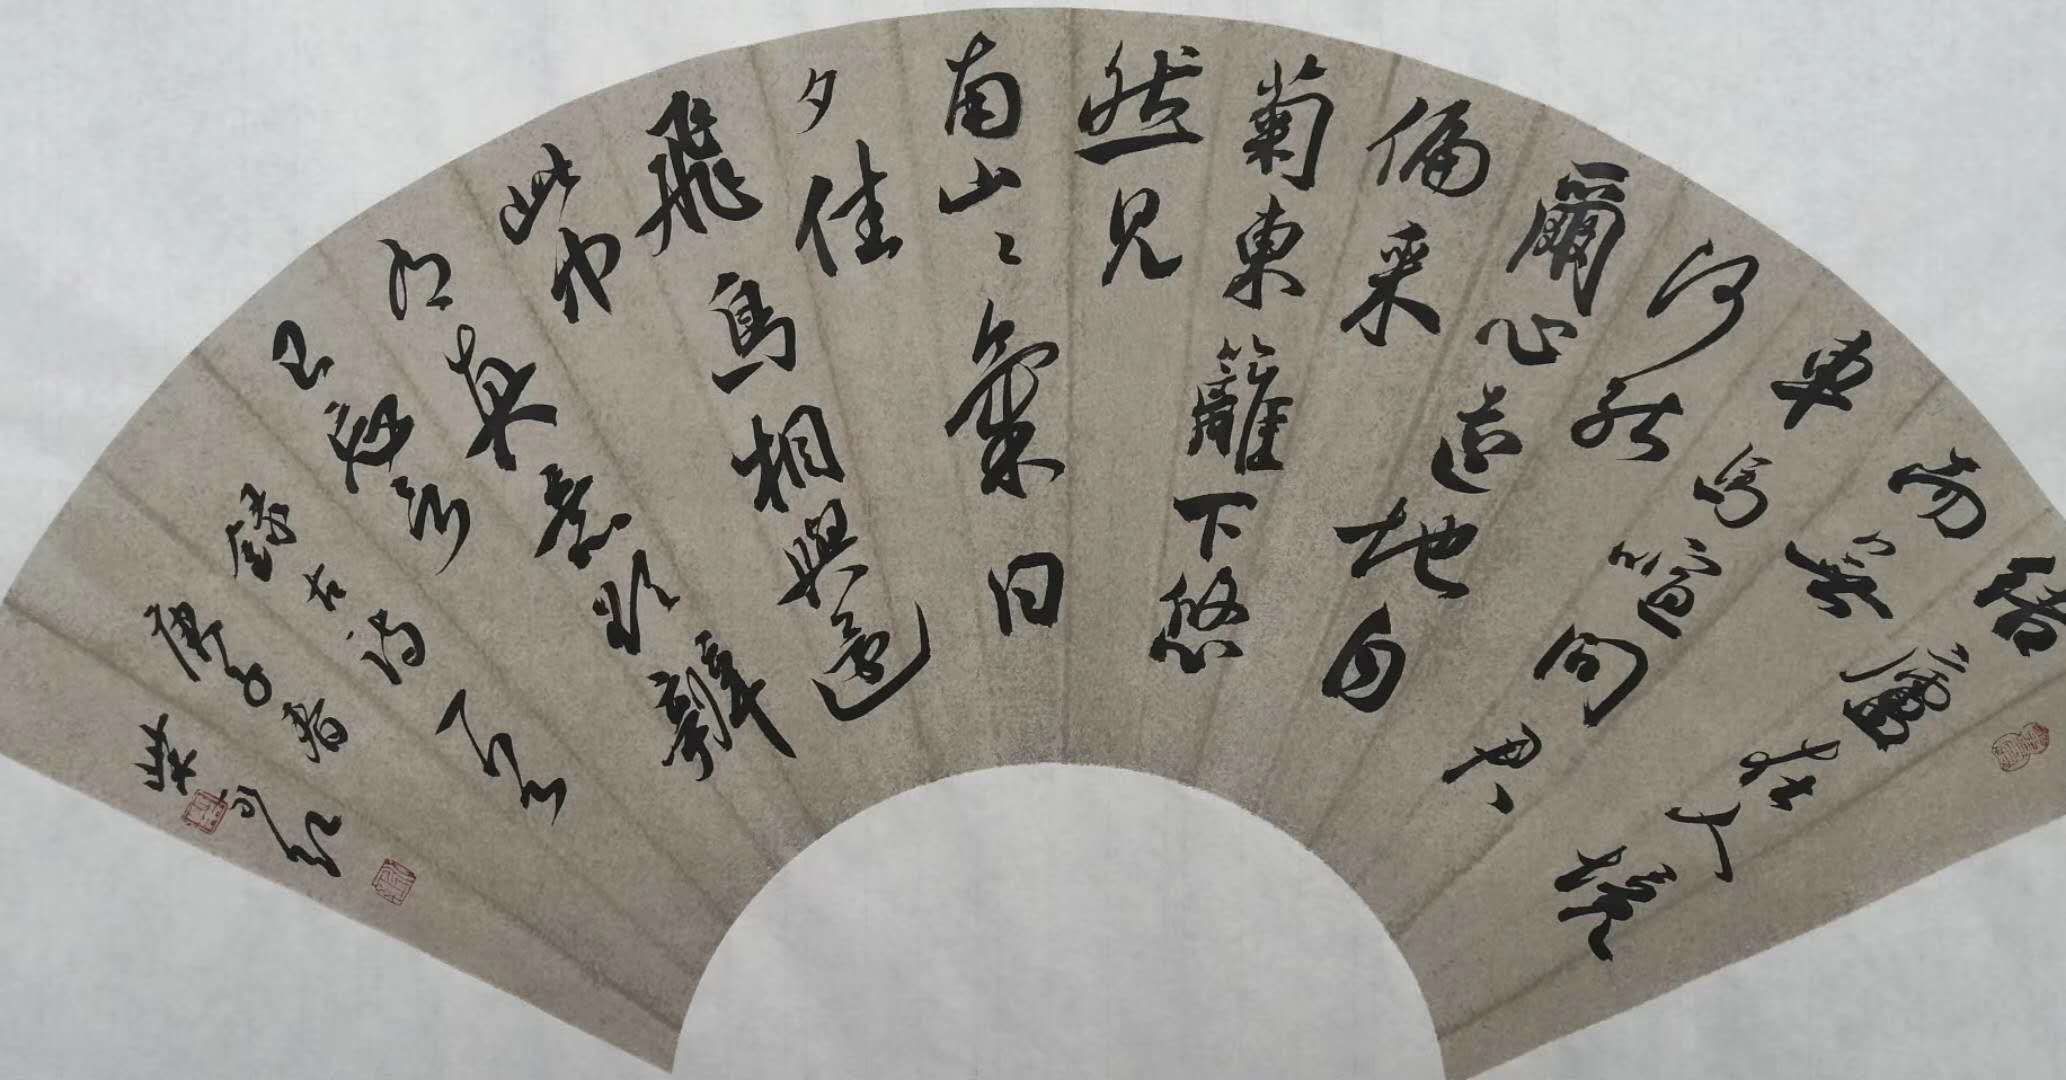 結廬在人境
而無
車馬喧問君
何能
爾心遠地自
偏采
菊東籬下悠
然見
南山々氣日
夕佳
飛鳥相與還
此中
有真意欲辨
已忘言
錄古詩一首
庚子春
柴